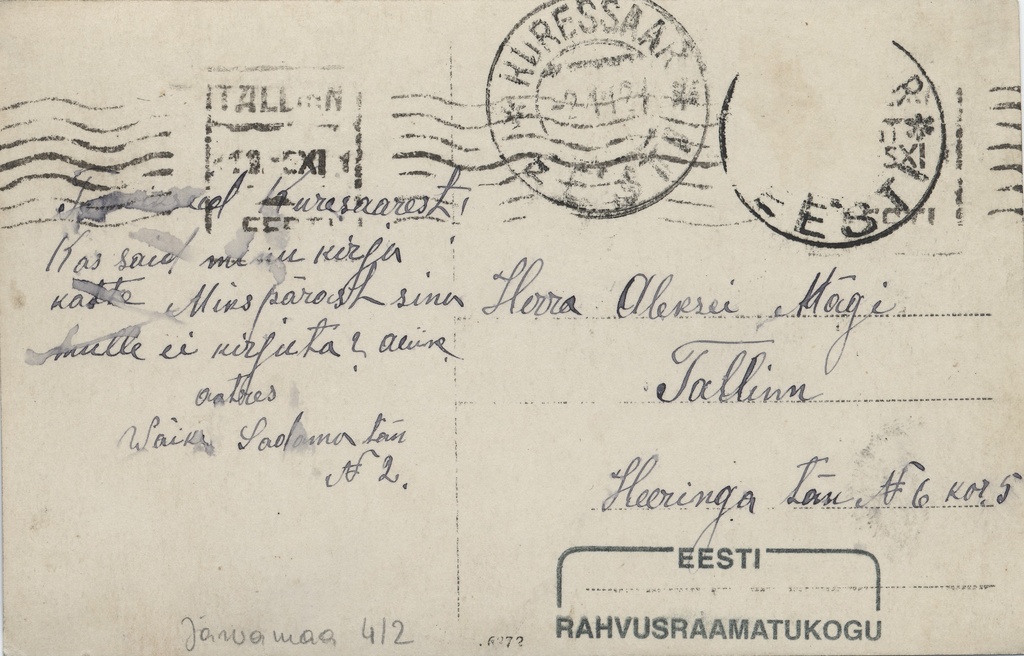 TALLINN
KURESSAARE
EESTI
EESTI
Kuresaarest,
Kas said minu kirja
kätte Mikspärast sina
mulle ei kirjuta?
aatres
Wäike Sadama tän
№ 2.
Herra Aleksei Mägi
Tallinn
Heeringa tän № 6 kor. 5
EESTI
RAHVUSRAAMATUKOGU
Järvamaa 4/2